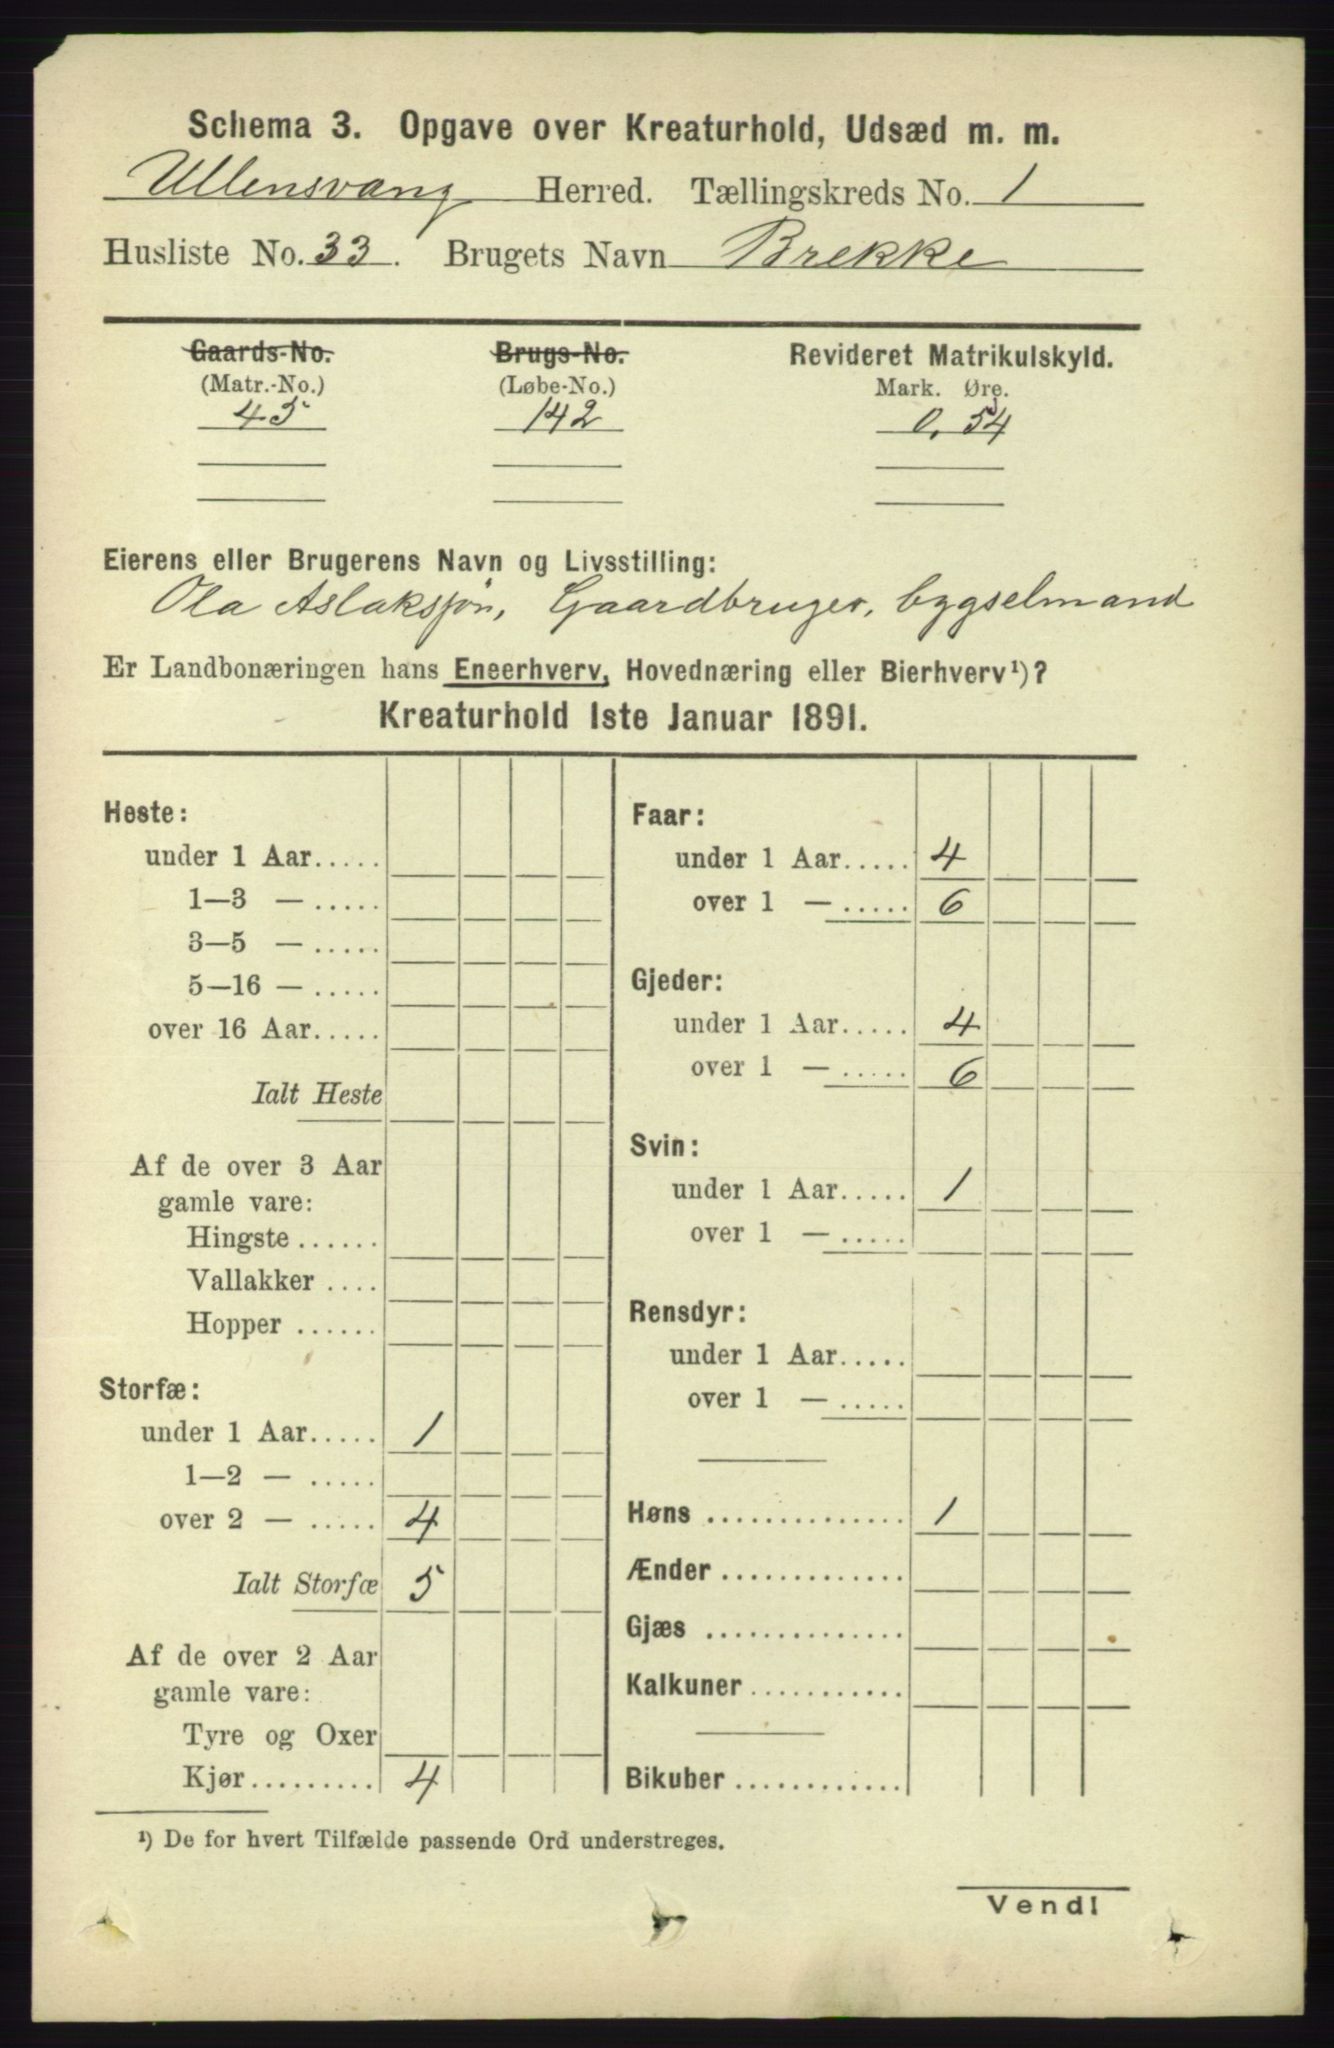 Schema 3. Opgave over Kreaturhold, Udsæd m. m.
Ullensvang Herred. Tællingskreds No. 1
Husliste No. 33. Brugets Navn Brekke
Gaards-No. Brugs-No. Revideret Matrikulskyld.
(Matr.-No.) (Løbe-No.) Mark. Øre.
45 142 0,54
Eierens eller Brugerens Navn og Livsstilling:
Ola Aslaksjøn, Gaardbruger, bygselmand
Er Landbonæringen hans Eneerhverv, Hovednæring eller Bierhverv¹)?
Kreaturhold 1ste Januar 1891.
Heste:
under 1 Aar.....
1—3 — .....
3—5 — .....
5—16 — .....
over 16 Aar.....
Ialt Heste
Af de over 3 Aar
gamle vare:
Hingste ......
Vallakker ....
Hopper ......
Storfæ:
under 1 Aar..... 1
1—2 — .....
over 2 — ..... 4
Ialt Storfæ 5
Af de over 2 Aar
gamle vare:
Tyre og Oxer
Kjør......... 4
Faar:
under 1 Aar..... 4
over 1 — ..... 6
Gjeder:
under 1 Aar..... 4
over 1 — ..... 6
Svin:
under 1 Aar..... 1
over 1 — .....
Rensdyr:
under 1 Aar.....
over 1 — .....
Høns .............. 1
Ænder .............
Gjæs ..............
Kalkuner ...........
Bikuber ............
¹) De for hvert Tilfælde passende Ord understreges.
Vend!